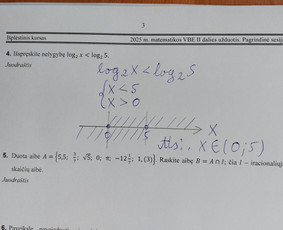 3
Išplėstinis kursas 2025 m. matematikos VBE II dalies užduotis. Pagrindinė sesija
4. Išspręskite nelygybę log₂ x < log₂ 5.
Juodraštis
log₂x < log₂5
{ x < 5
x > 0
0 5 X
Ats.: x ∈ (0; 5)
5. Duota aibė A = {5,5; √5; 0; π; −12½; 1,(3)}. Raskite aibę B = A ∩ I; čia I – iracionaliųjų
skaičių aibė.
Juodraštis